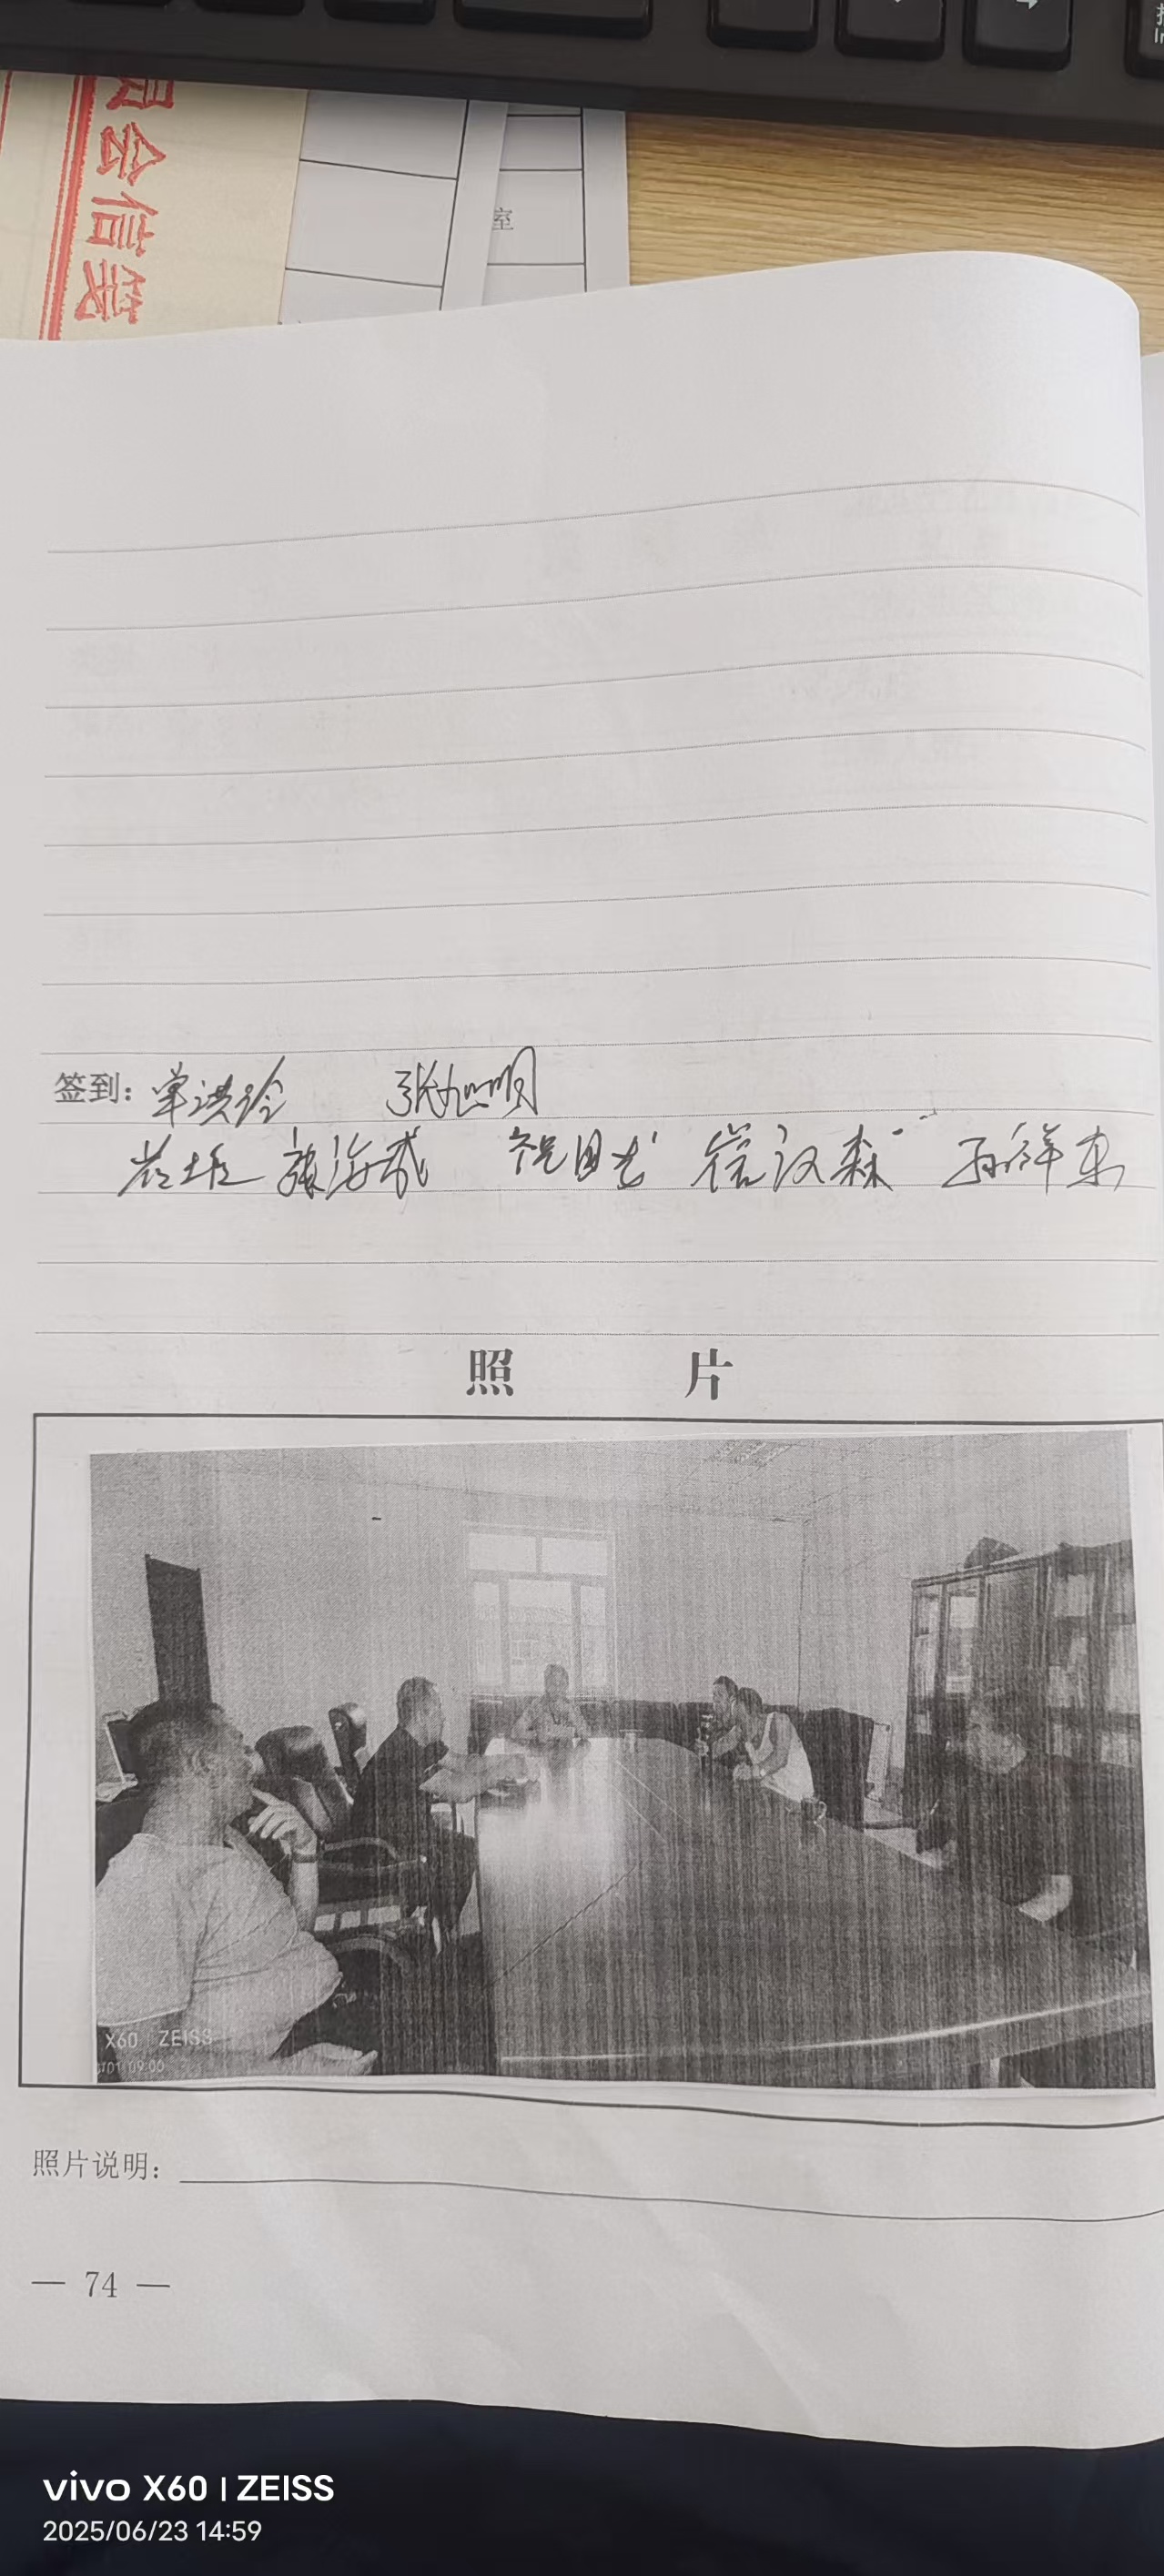 员会信笺
室
签到: 单洪玲 张旭明
张海成 祝国志 崔汉森 孙祥东
照 片
X60 ZEISS
01 09:00
照片说明:
— 74 —
vivo X60 | ZEISS
2025/06/23 14:59